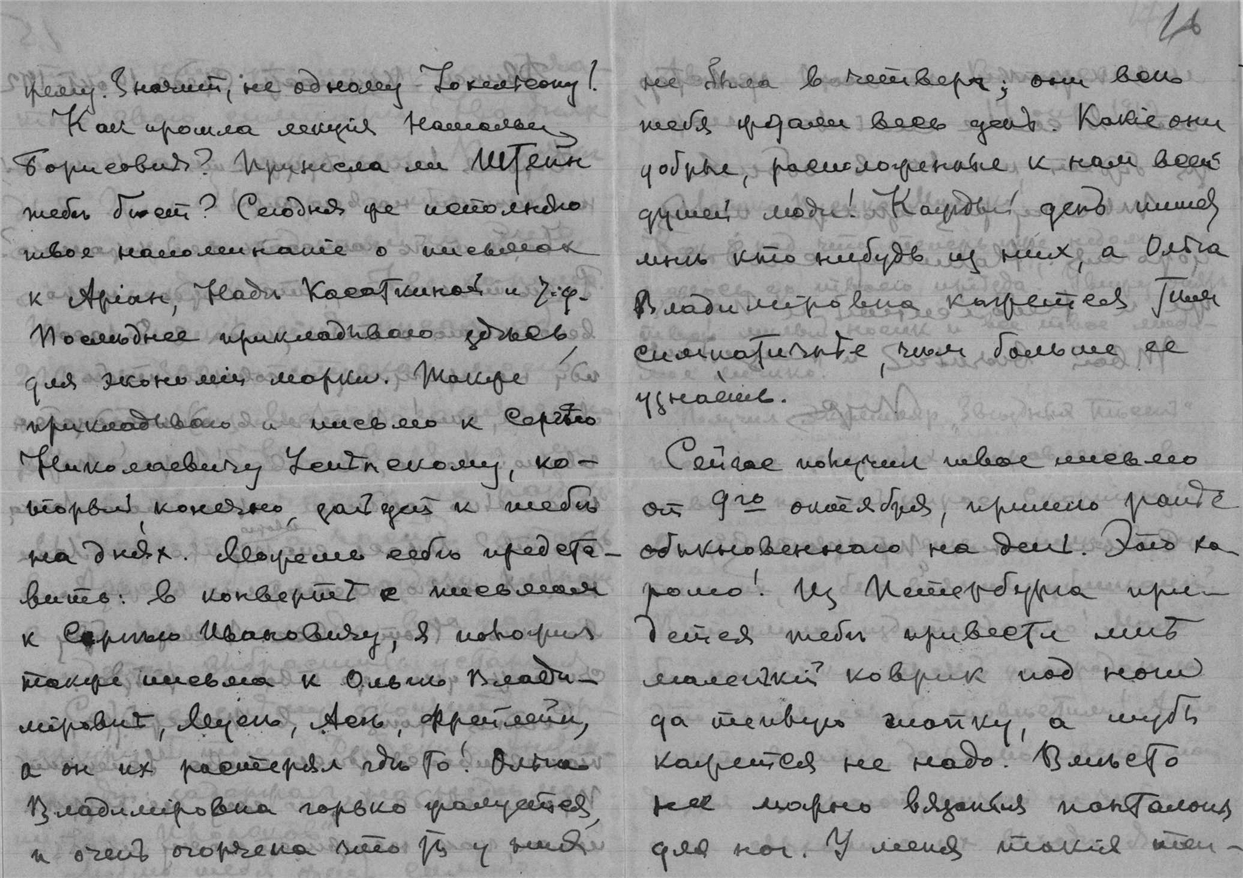 Значит, не одному
Как прошла лекція Натальи
Борисовны? Принесла ли Штейн
тебѣ билет? Сегодня же исполняю
твое напоминаніе о письмах
к Аріан, Надѣ Касаткиной и
Послѣднее прикладываю здѣсь,
для экономіи марки. Также
прикладываю и письмо к Сергѣю
Николаевичу ко-
торый, конечно, зайдет к тебѣ
на днях. Можешь себѣ предста-
вить: в конвертѣ с письмами
к Сергѣю Ивановичу, я положил
также письма к Ольгѣ Влади-
міровнѣ, Мусѣ, Асѣ, Фрейлейн,
а он их растерял гдѣ то! Ольга
Владиміровна горько жалуется,
и очень огорчена что ты у них
16
не была в четверг; они всѣ
тебя ждали весь день. Какіе они
добрые, расположенные к нам всей
душей люди! Каждый день пишет
мнѣ кто нибудь из них, а Ольга
Владиміровна кажется тѣм
симпатичнѣе, чѣм больше ее
узнаешь.
Сейчас получил твое письмо
от 9го октября, пришло раньше
обыкновеннаго на день. Это хо-
рошо! Из Петербурга при-
дется тебѣ привезти мнѣ
маленькій коврик под ноги
да теплую шапку, а шубы
кажется не надо. Вмѣсто
нее можно вязаныя панталоны
для ног. У меня такія теп-